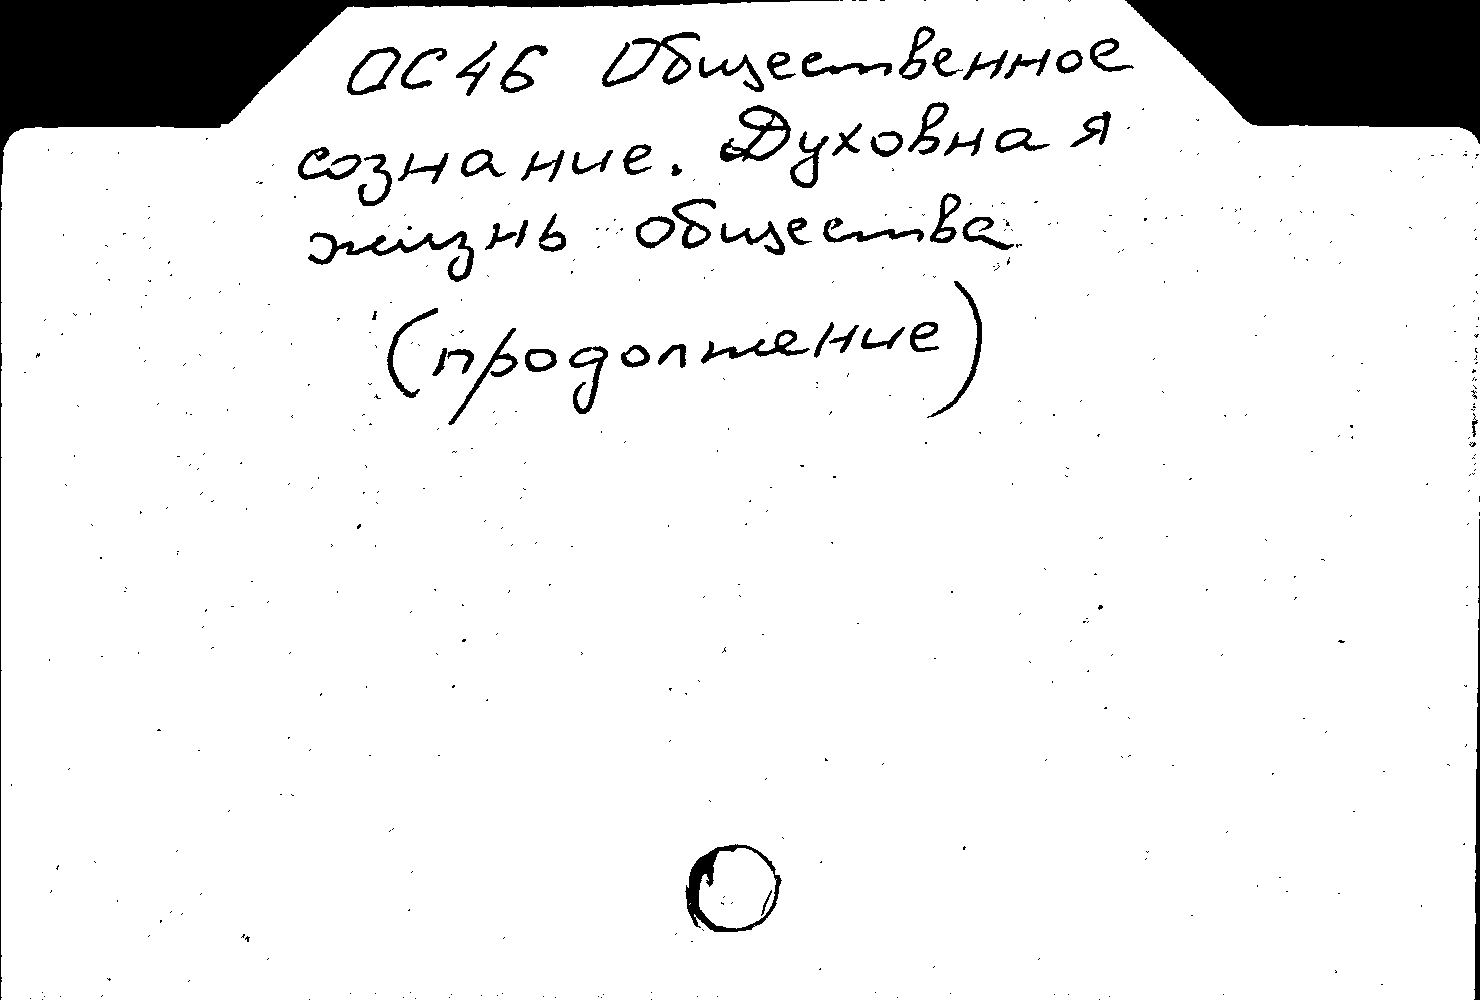 ОС46 Общественное
сознание. Духовная
жизнь общества
(продолжение)